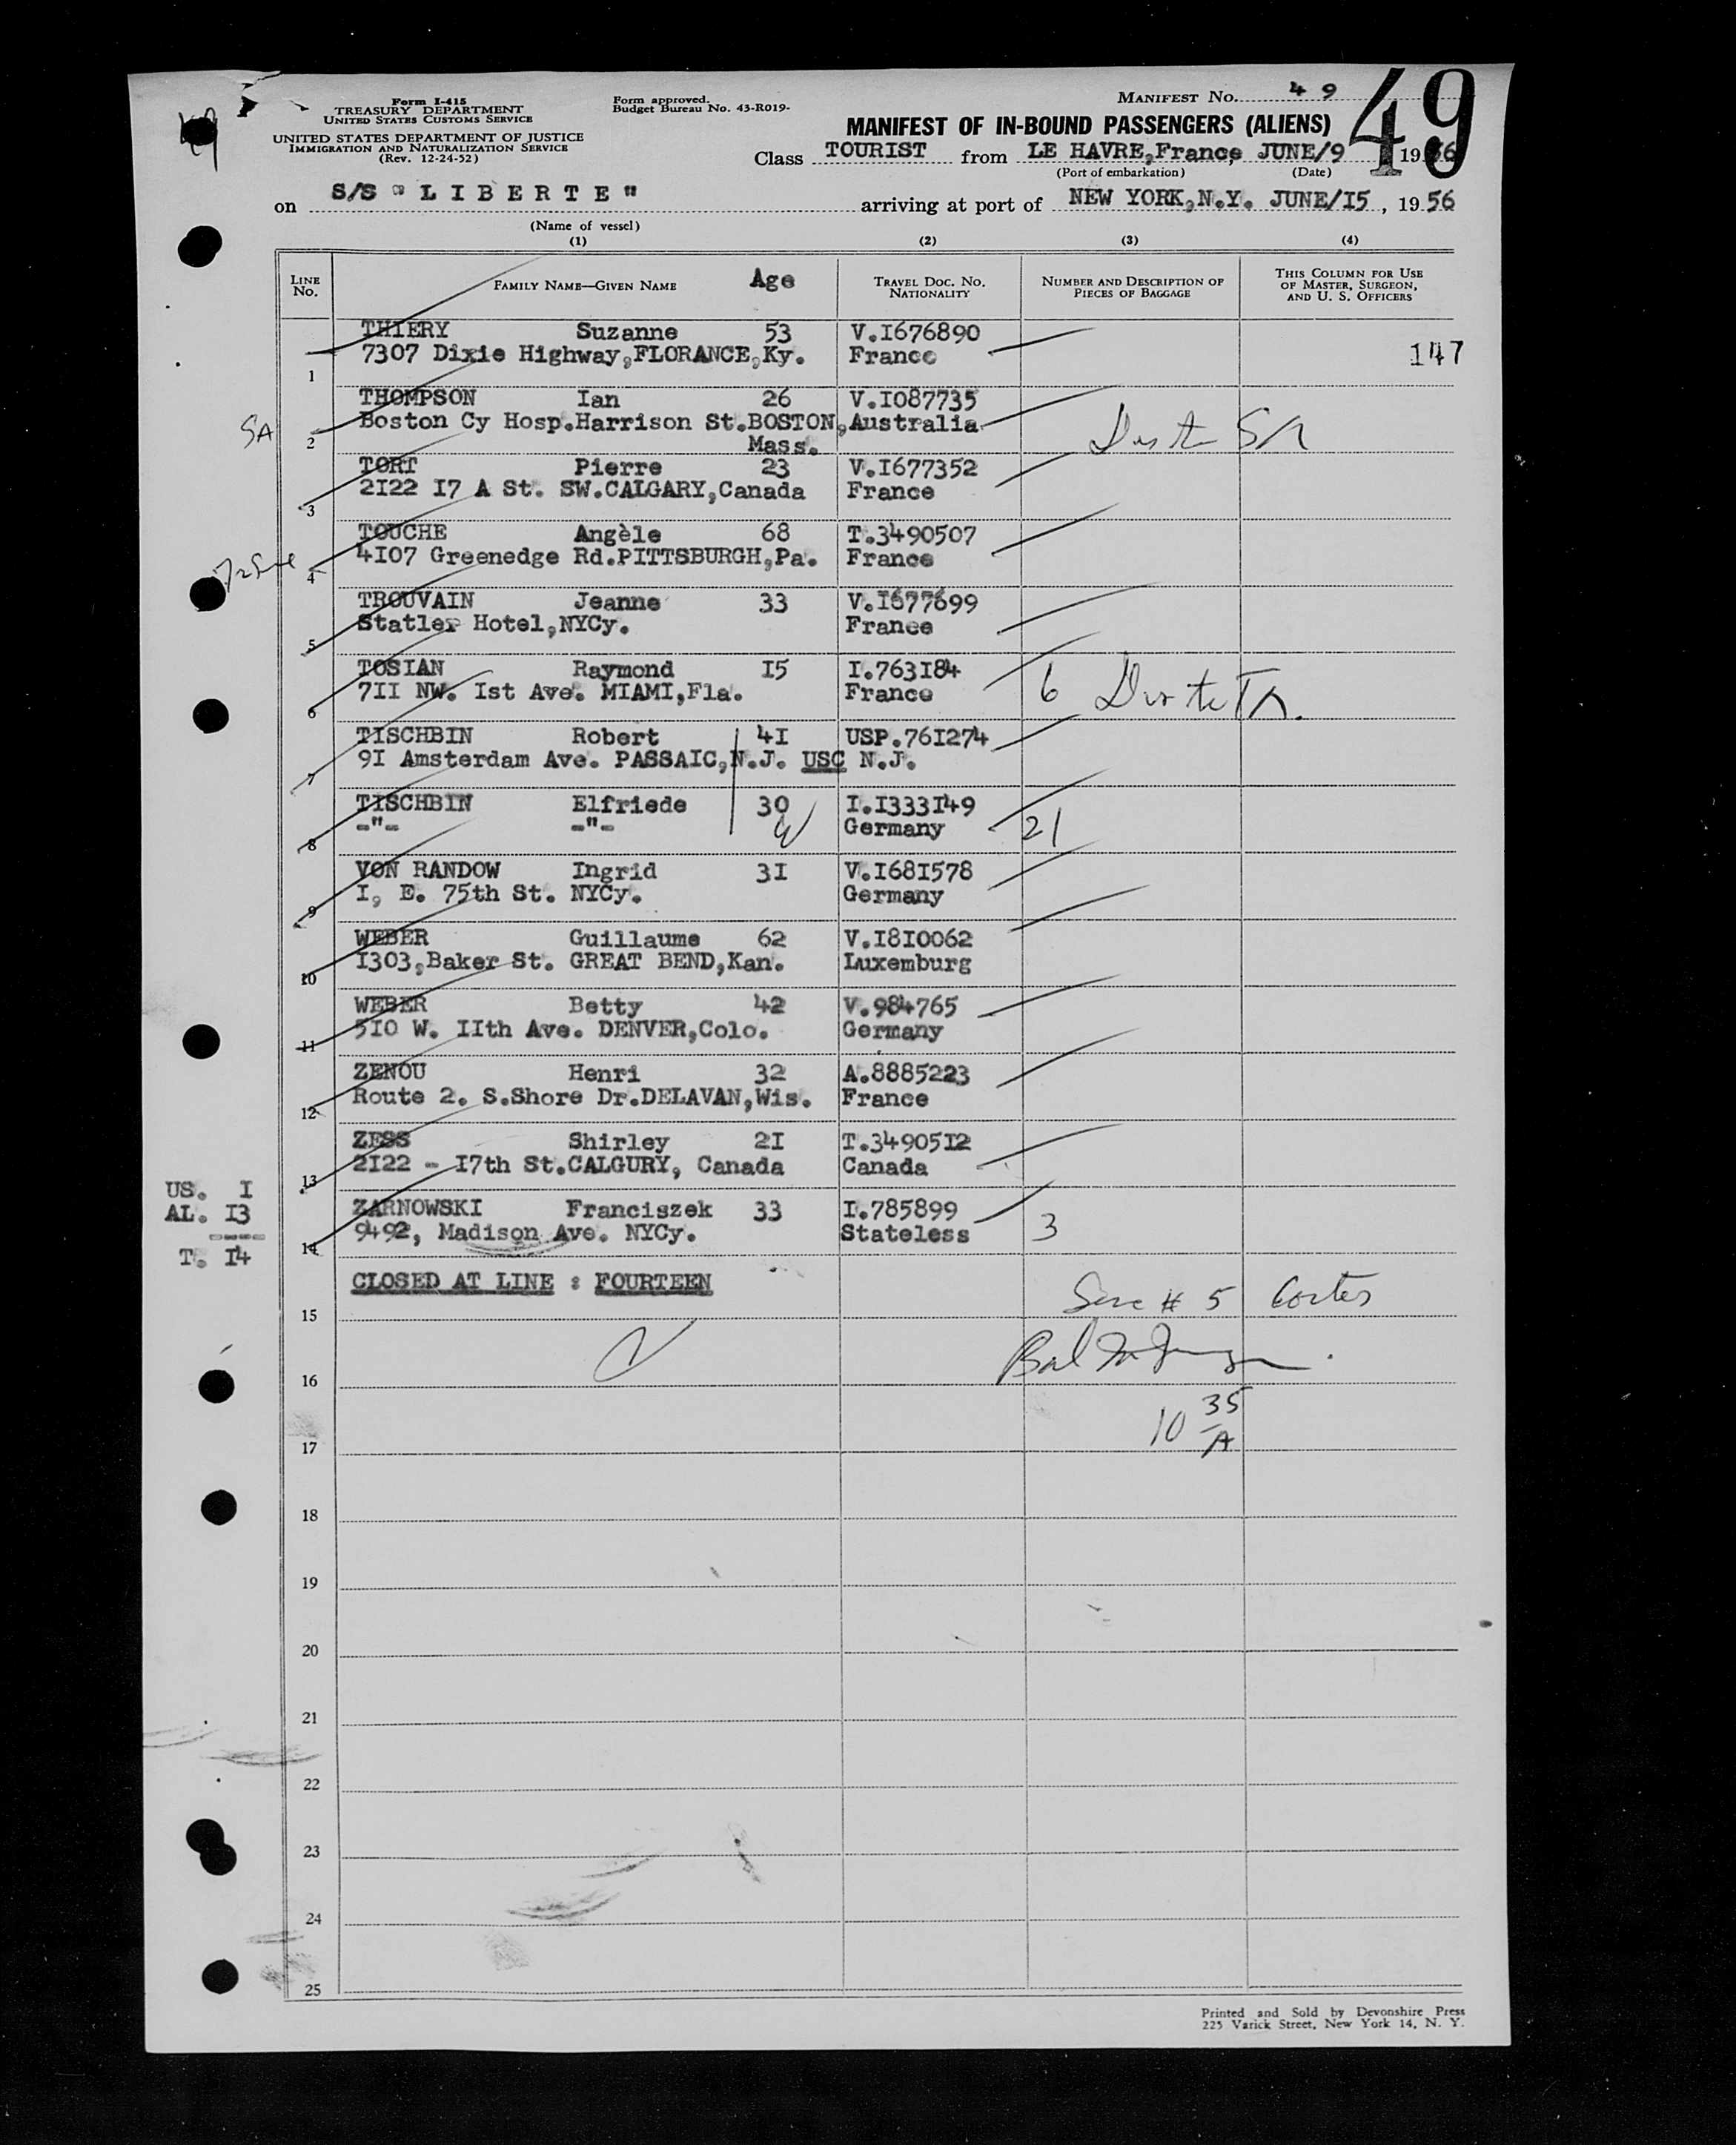 49
Form I-415
TREASURY DEPARTMENT
UNITED STATES CUSTOMS SERVICE
UNITED STATES DEPARTMENT OF JUSTICE
IMMIGRATION AND NATURALIZATION SERVICE
(Rev. 12-24-52)
Form approved.
Budget Bureau No. 43-R019-
MANIFEST No. 49
49
MANIFEST OF IN-BOUND PASSENGERS (ALIENS)
Class TOURIST from LE HAVRE,France JUNE/9 1956
(Port of embarkation) (Date)
on S/S "LIBERTE" arriving at port of NEW YORK,N.Y. JUNE/I5, 1956
(Name of vessel)
(1) (2) (3) (4)
LINE No. FAMILY NAME—GIVEN NAME Age TRAVEL DOC. No. NATIONALITY NUMBER AND DESCRIPTION OF PIECES OF BAGGAGE THIS COLUMN FOR USE OF MASTER, SURGEON, AND U. S. OFFICERS
THIERY Suzanne 53 V.I676890
7307 Dixie Highway,FLORANCE,Ky. France 147
1
THOMPSON Ian 26 V.I087735
SA 2 Boston Cy Hosp.Harrison St.BOSTON, Australia
Mass.
TORT Pierre 23 V.I677352
2I22 I7 A St. SW.CALGARY,Canada France
3
TOUCHE Angèle 68 T.3490507
4I07 Greenedge Rd.PITTSBURGH,Pa. France
4
TROUVAIN Jeanne 33 V.I677699
Statler Hotel,NYCy. France
5
TOSIAN Raymond I5 I.763I84
7II NW. Ist Ave. MIAMI,Fla. France 6
6
TISCHBIN Robert 4I USP.76I274
9I Amsterdam Ave. PASSAIC,N.J. USC N.J.
7
TISCHBIN Elfriede 30 I.I333I49
-"- -"- Germany 21
8
VON RANDOW Ingrid 3I V.I68I578
I, E. 75th St. NYCy. Germany
9
WEBER Guillaume 62 V.I8I0062
I303,Baker St. GREAT BEND,Kan. Luxemburg
10
WEBER Betty 42 V.984765
5I0 W. IIth Ave. DENVER,Colo. Germany
11
ZENOU Henri 32 A.8885223
Route 2. S.Shore Dr.DELAVAN,Wis. France
12
ZESS Shirley 2I T.34905I2
2I22 - I7th St.CALGURY, Canada Canada
13
US. I
AL. I3
----
T. I4
ZARNOWSKI Franciszek 33 I.785899
9492, Madison Ave. NYCy. Stateless 3
14
CLOSED AT LINE : FOURTEEN
15 # 5
16
10 35 A
17
18
19
20
21
22
23
24
25
Printed and Sold by Devonshire Press
225 Varick Street, New York 14, N. Y.